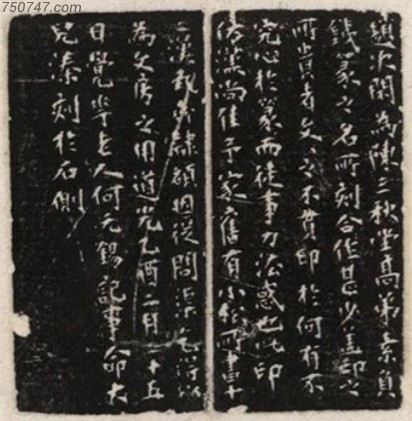 750747.com
趙次閑為陳三秋堂高弟素負
鐵篆之名所刻合作甚少蓋印之
所貴者文文之不貫印於何有不
究心於篆而徒事刀法惑也此印
仿漢尚佳予家舊有小松所書十
三漢
隸額因從
為文房之用道光乙酉二月二十五
日覺華老人何元錫記事命大
兒溱刻於石側